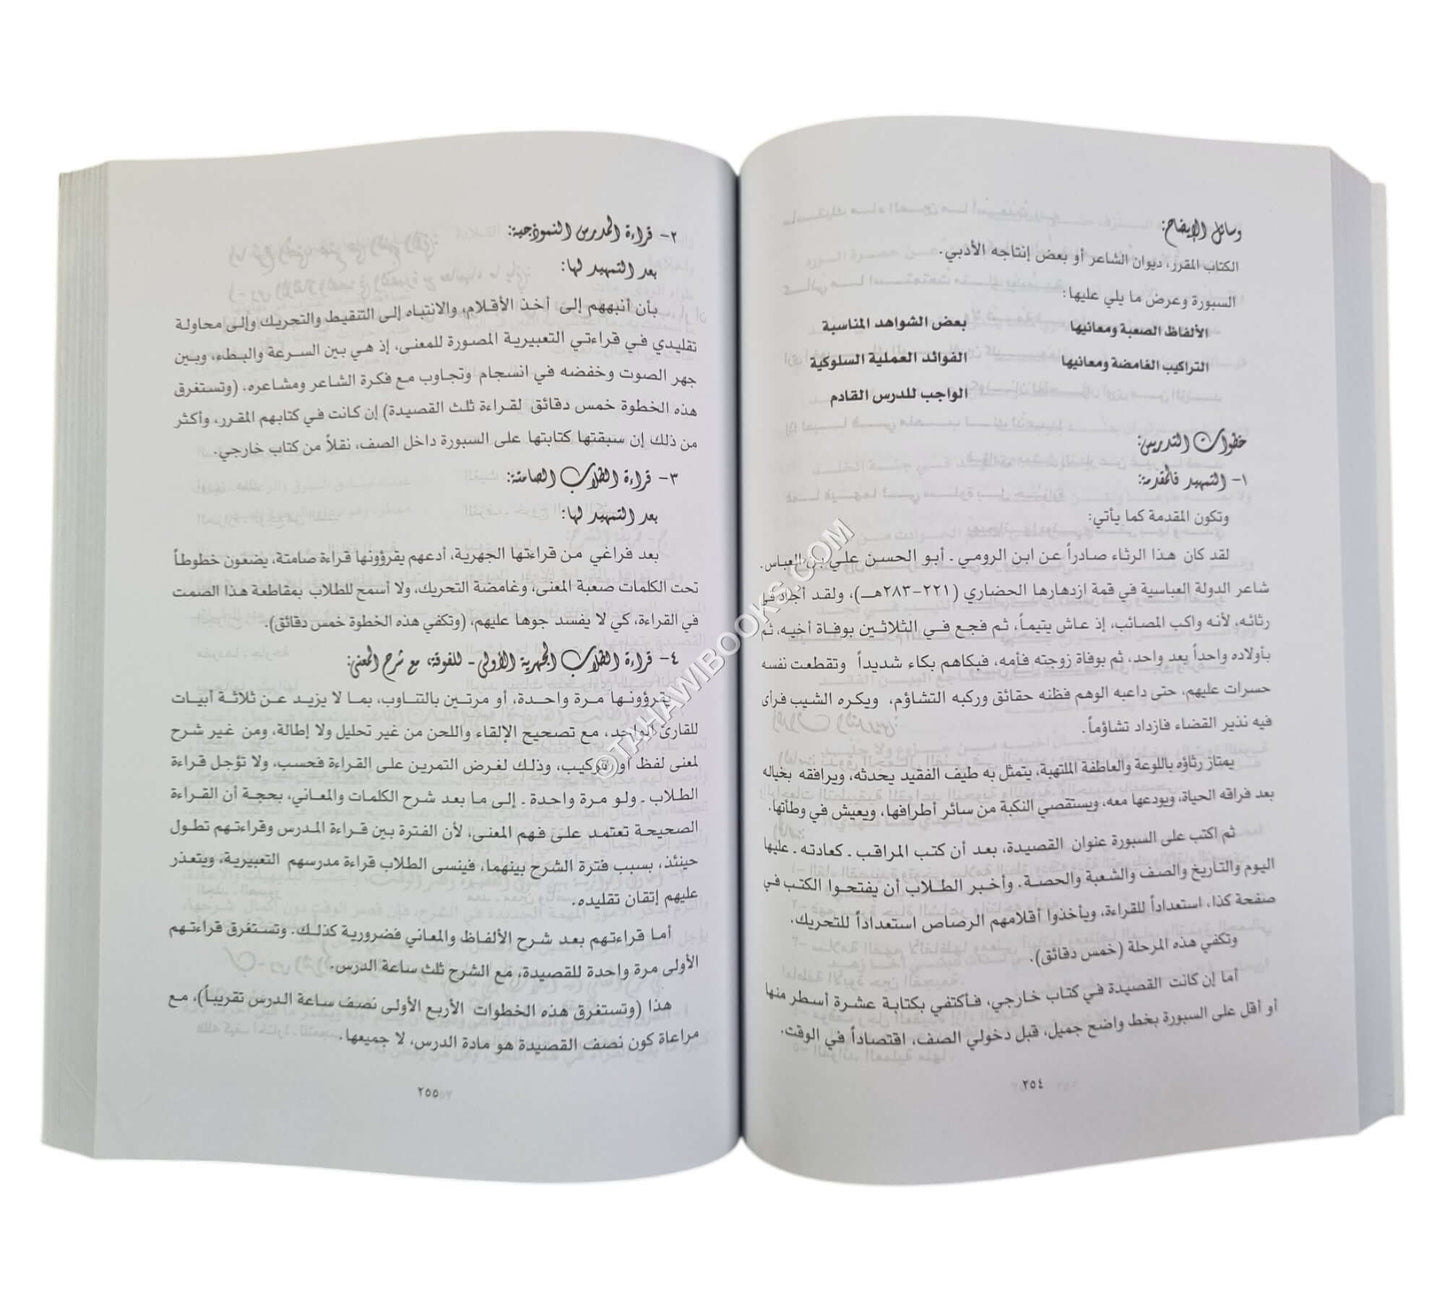 وسائل الإيضاح:
الكتاب المقرر، ديوان الشاعر أو بعض إنتاجه الأدبي.
السبورة وعرض ما يلي عليها:
الألفاظ الصعبة ومعانيها بعض الشواهد المناسبة
التراكيب الغامضة ومعانيها الفوائد العملية السلوكية
الواجب للدرس القادم
خطوات التدريس:
١- التمهيد فالمقدمة:
وتكون المقدمة كما يأتي:
لقد كان هذا الرثاء صادراً عن ابن الرومي ـ أبو الحسن علي بن العباس.
شاعر الدولة العباسية في قمة ازدهارها الحضاري (٢٢١-٢٨٣هـ)، ولقد أجاد في
رثائه، لأنه واكب المصائب، إذ عاش يتيماً، ثم فجع في الثلاثين بوفاة أخيه، ثم
بأولاده واحداً بعد واحد، ثم بوفاة زوجته فأمه، فبكاهم بكاء شديداً وتقطعت نفسه
حسرات عليهم، حتى داعبه الوهم فظنه حقائق وركبه التشاؤم، ويكره الشيب فرأى
فيه نذير القضاء فازداد تشاؤماً.
يمتاز رثاؤه باللوعة والعاطفة الملتهبة، يتمثل به طيف الفقيد يحدثه، ويرافقه بخياله
بعد فراقه الحياة، ويودعها معه، ويستقصي النكبة من سائر أطرافها، ويعيش في وطأتها.
ثم اكتب على السبورة عنوان القصيدة، بعد أن كتب المراقب ـ كعادته ـ عليها
اليوم والتأريخ والصف والشعبة والحصة. وأخبر الطلاب أن يفتحوا الكتب في
صفحة كذا، استعداداً للقراءة، ويأخذوا أقلامهم الرصاص استعداداً للتحريك.
وتكفي هذه المرحلة (خمس دقائق).
أما إن كانت القصيدة في كتاب خارجي، فأكتفي بكتابة عشرة أسطر منها
أو أقل على السبورة بخط واضح جميل، قبل دخولي الصف، اقتصاداً في الوقت.
٢٥٤
٢- قراءة المدرس النموذجية:
بعد التمهيد لها:
بأن أنبههم إلى أخذ الأقلام، والانتباه إلى التنقيط والتحريك وإلى محاولة
تقليدي في قراءتي التعبيرية المصورة للمعنى، إذ هي بين السرعة والبطء، وبين
جهر الصوت وخفضه في انسجام وتجاوب مع فكرة الشاعر ومشاعره، (وتستغرق
هذه الخطوة خمس دقائق لقراءة ثلث القصيدة) إن كانت في كتابهم المقرر، وأكثر
من ذلك إن سبقتها كتابتها على السبورة داخل الصف، نقلاً من كتاب خارجي.
٣- قراءة الطلاب الصامتة:
بعد التمهيد لها:
بعد فراغي من قراءتها الجهرية، أدعهم يقرؤونها قراءة صامتة، يضعون خطوطاً
تحت الكلمات صعبة المعنى، وغامضة التحريك، ولا أسمح للطلاب بمقاطعة هذا الصمت
في القراءة، كي لا يفسد جوها عليهم، (وتكفي هذه الخطوة خمس دقائق).
٤- قراءة الطلاب الجهرية الأولى - للفوقة، مع شرح المعنى:
يقرؤونها مرة واحدة، أو مرتين بالتناوب، بما لا يزيد عن ثلاثة أبيات
للقارئ الواحد، مع تصحيح الإلقاء واللحن من غير تحليل ولا إطالة، ومن غير شرح
لمعنى لفظ أو تركيب، وذلك لغرض التمرين على القراءة فحسب، ولا تؤجل قراءة
الطلاب ـ ولو مرة واحدة ـ إلى ما بعد شرح الكلمات والمعاني، بحجة أن القراءة
الصحيحة تعتمد على فهم المعنى، لأن الفترة بين قراءة المدرس وقراءتهم تطول
حينئذ، بسبب فترة الشرح بينهما، فينسى الطلاب قراءة مدرسهم التعبيرية، ويتعذر
عليهم إتقان تقليده.
أما قراءتهم بعد شرح الألفاظ والمعاني فضرورية كذلك. وتستغرق قراءتهم
الأولى مرة واحدة للقصيدة، مع الشرح ثلث ساعة الدرس.
هذا (وتستغرق هذه الخطوات الأربع الأولى نصف ساعة الدرس تقريباً)، مع
مراعاة كون نصف القصيدة هو مادة الدرس، لا جميعها.
٢٥٥
©TAHAWIBOOKS.COM